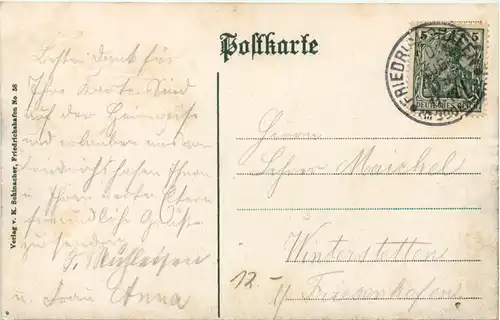 Postkarte
Besten Dank für
Ihre Karte. Sind
auf der Heimreise
und erlauben uns von
Friedrichshafen Ihnen
u. Ihren werten Eltern
freundliche Grüße
zu senden
u. Frau Anna
Verlag v. K. Schinacher, Friedrichshafen No 58
5 5
DEUTSCHES REICH
FRIEDRICHSHAFEN
Herrn
Lehrer Maichel
Winterstetten
12.-
Friesenhofen